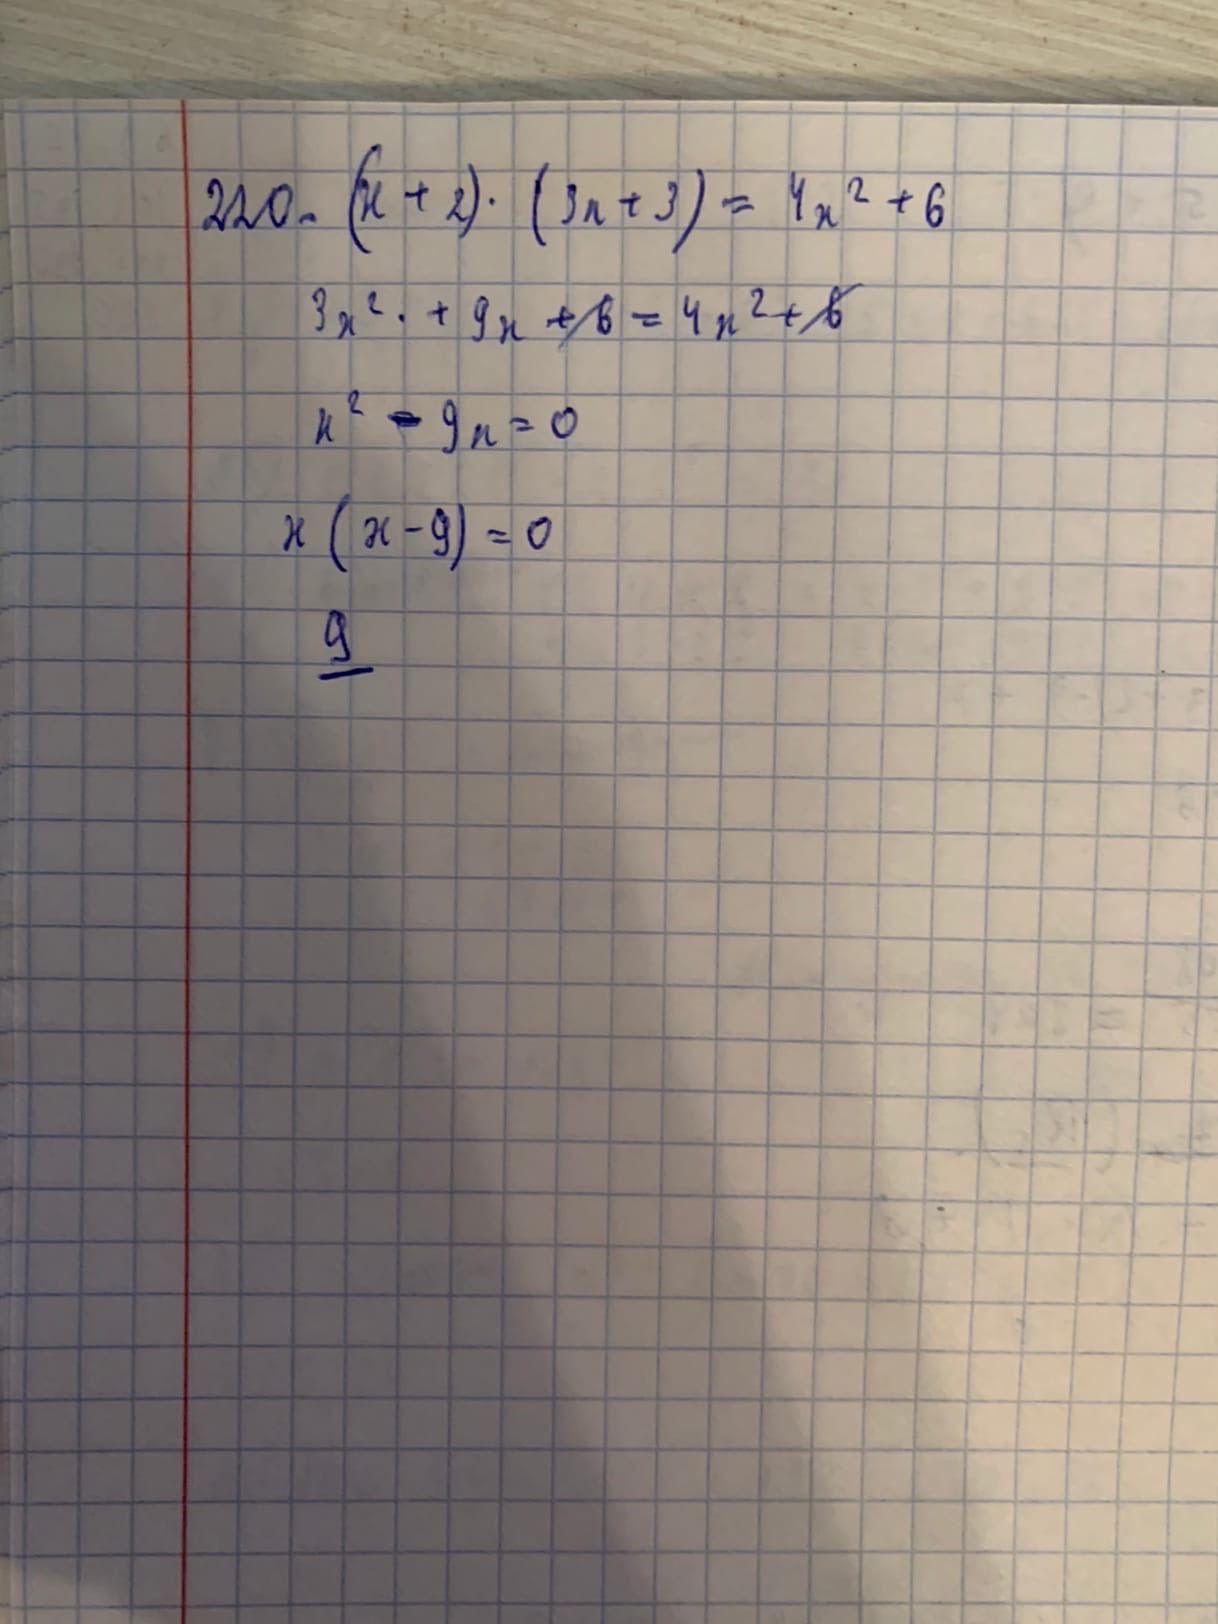 220. (x + 2) · (3x + 3) = 4x² + 6
3x² · + 9x + 6 = 4x² + 6
x² - 9x = 0
x (x - 9) = 0
9